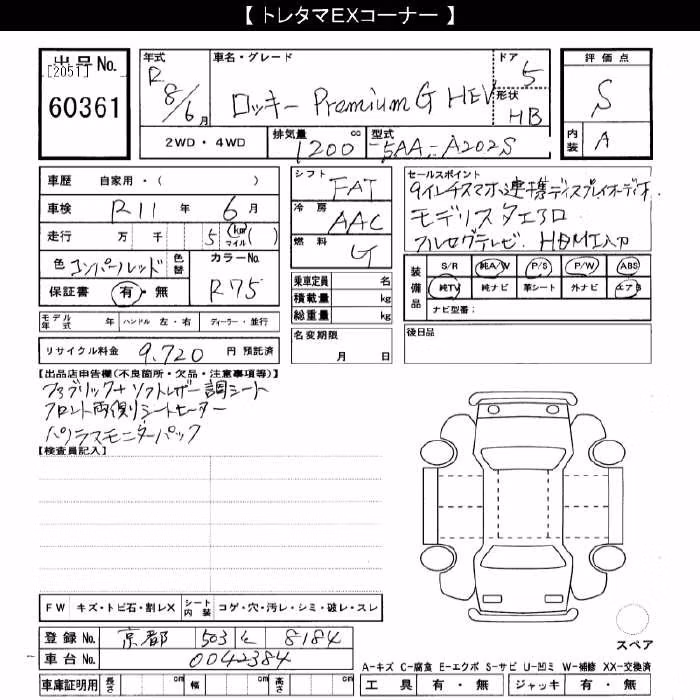 【 トレタマEXコーナー 】
出品No.
[2051]
60361
年式
R 8/6月
車名・グレード
ロッキー Premium G HEV
ドア
5
形状
HB
評価点
S
内装
A
2WD・4WD
排気量
1200
cc
型式
5AA-A202S
車歴 自家用・( )
車検 R11年 6月
走行 万 千 5 (km マイル) ( )
色 コンパーノレッド
色替
カラーNo.
R75
保証書 有・無
シフト
FAT
冷房
AAC
燃料
G
セールスポイント
9インチスマホ連携ディスプレイオーディオ
モデリスタエアロ
フルセグテレビ. HDMI入力
乗車定員 名
積載量 kg
総重量 kg
装備品
S/R 純A/W P/S P/W ABS
純TV 純ナビ 革シート 外ナビ エアB
ナビ型番:
モデル年式 年 ハンドル 左・右 ディーラー・並行
名変期限
月 日
後日品
リサイクル料金 9,720 円 預託済
【出品店申告欄(不良箇所・欠品・注意事項等)】
ファブリック+ソフトレザー調シート
フロント両側シートヒーター
パノラマモニターパック
【検査員記入】
FW キズ・トビ石・割レX
シート内装 コゲ・穴・汚レ・シミ・破レ・スレ
登録No. 京都 503 8184
車台No. 0042384
車庫証明用 長さ cm 幅 cm 高さ cm
スペア
A-キズ C-腐食 E-エクボ S-サビ U-凹ミ W-補修 XX-交換済
工具 有・無 ジャッキ 有・無